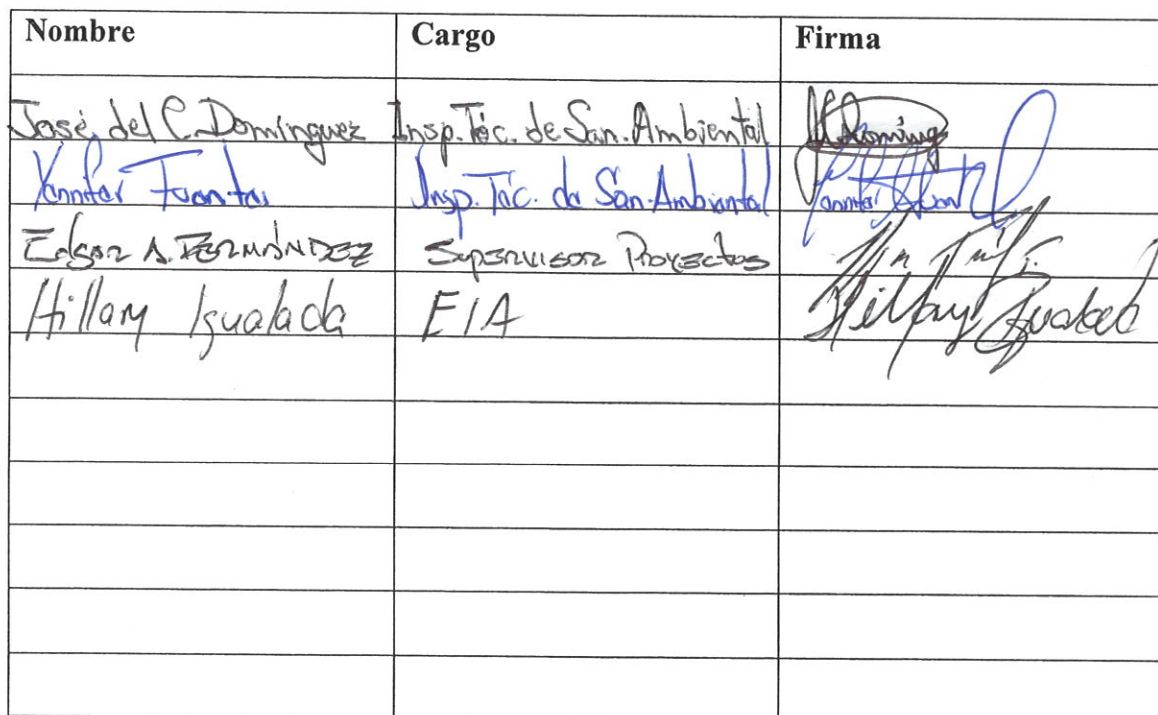 Nombre Cargo Firma
José del C. Domínguez Insp. Téc. de San. Ambiental
Yennifer Fuentes Insp. Téc. de San. Ambiental
Edgar A. FERMÁNDEZ Supervisor Proyectos
Hillary Igualada EIA Hillary Igualada